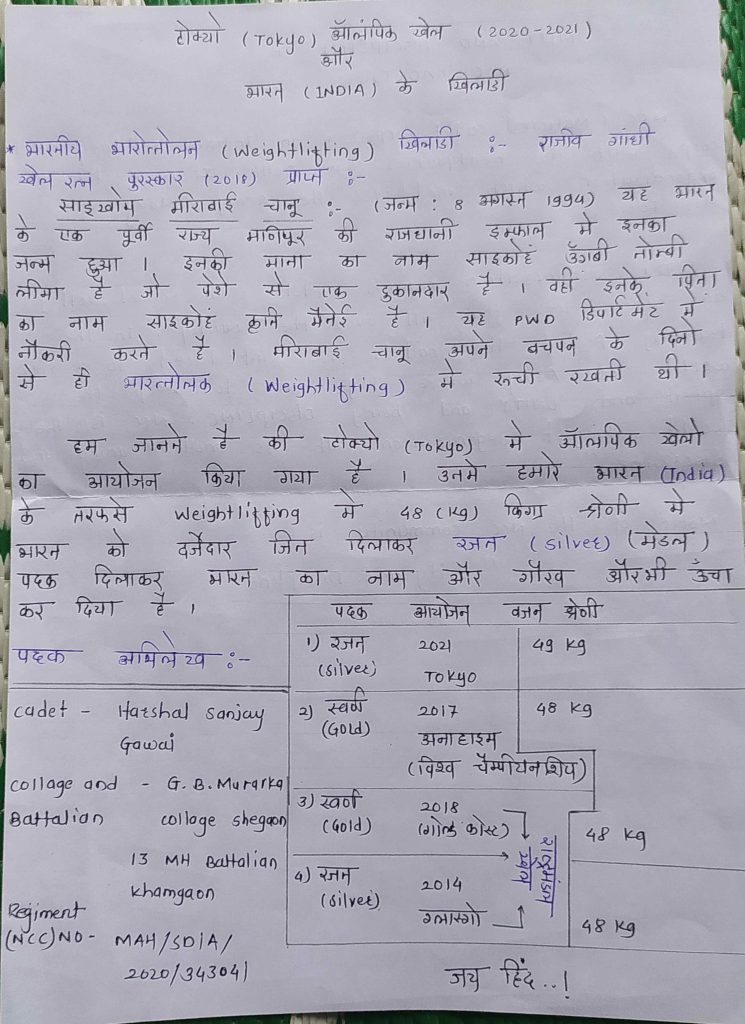 टोक्यो (Tokyo) ऑलंपिक खेल (2020-2021)
और
भारत (INDIA) के खिलाडी
* भारतीय भारोत्तोलन (Weightlifting) खिलाडी :- राजीव गांधी
खेल रत्न पुरस्कार (2018) प्राप्त :-
साइखोम मीराबाई चानू :- (जन्म : 8 अगस्त 1994) यह भारत
के एक पूर्वी राज्य मणिपूर की राजधानी इम्फाल मे इनका
जन्म हुआ । इनकी माता का नाम साइकोहं उँगबी तोम्बी
लीमा है जो पेशे से एक दुकानदार है । वही इनके पिता
का नाम साइकोहं कृति मैतेई है । यह PWD डिपार्टमेंट में
नौकरी करते है । मीराबाई चानू अपने बचपन के दिनो
से ही भारत्तोलक (Weightlifting) मे रूची रखती थी ।
हम जानते है की टोक्यो (Tokyo) मे ऑलंपिक खेलो
का आयोजन किया गया है । उनमे हमारे भारत (India)
के तरफसे Weightlifting मे 48 (kg) किग्रा श्रेणी मे
भारत को दर्जेदार जित दिलाकर रजत (silver) (मेडल)
पदक दिलाकर भारत का नाम और गौरव औरभी उँचा
कर दिया है ।
पदक अभिलेख :-
पदक आयोजन वजन श्रेणी
1) रजत 2021 49 kg
(silver) Tokyo
2) स्वर्ण 2017 48 kg
(Gold) अनाहाइम
(विश्व चैम्पीयनशिप)
3) स्वर्ण 2018 48 kg
(Gold) (गोल्ड कोस्ट)
राष्ट्रमंडल
खेल
4) रजत 2014 48 kg
(silver) ग्लास्गो
cadet - Harshal sanjay
Gawai
collage and - G. B. Murarka
Battalian collage shegaon
13 MH Battalian
khamgaon
Regiment
(NCC) NO - MAH/SDIA/
2020/343041
जय हिंद..!